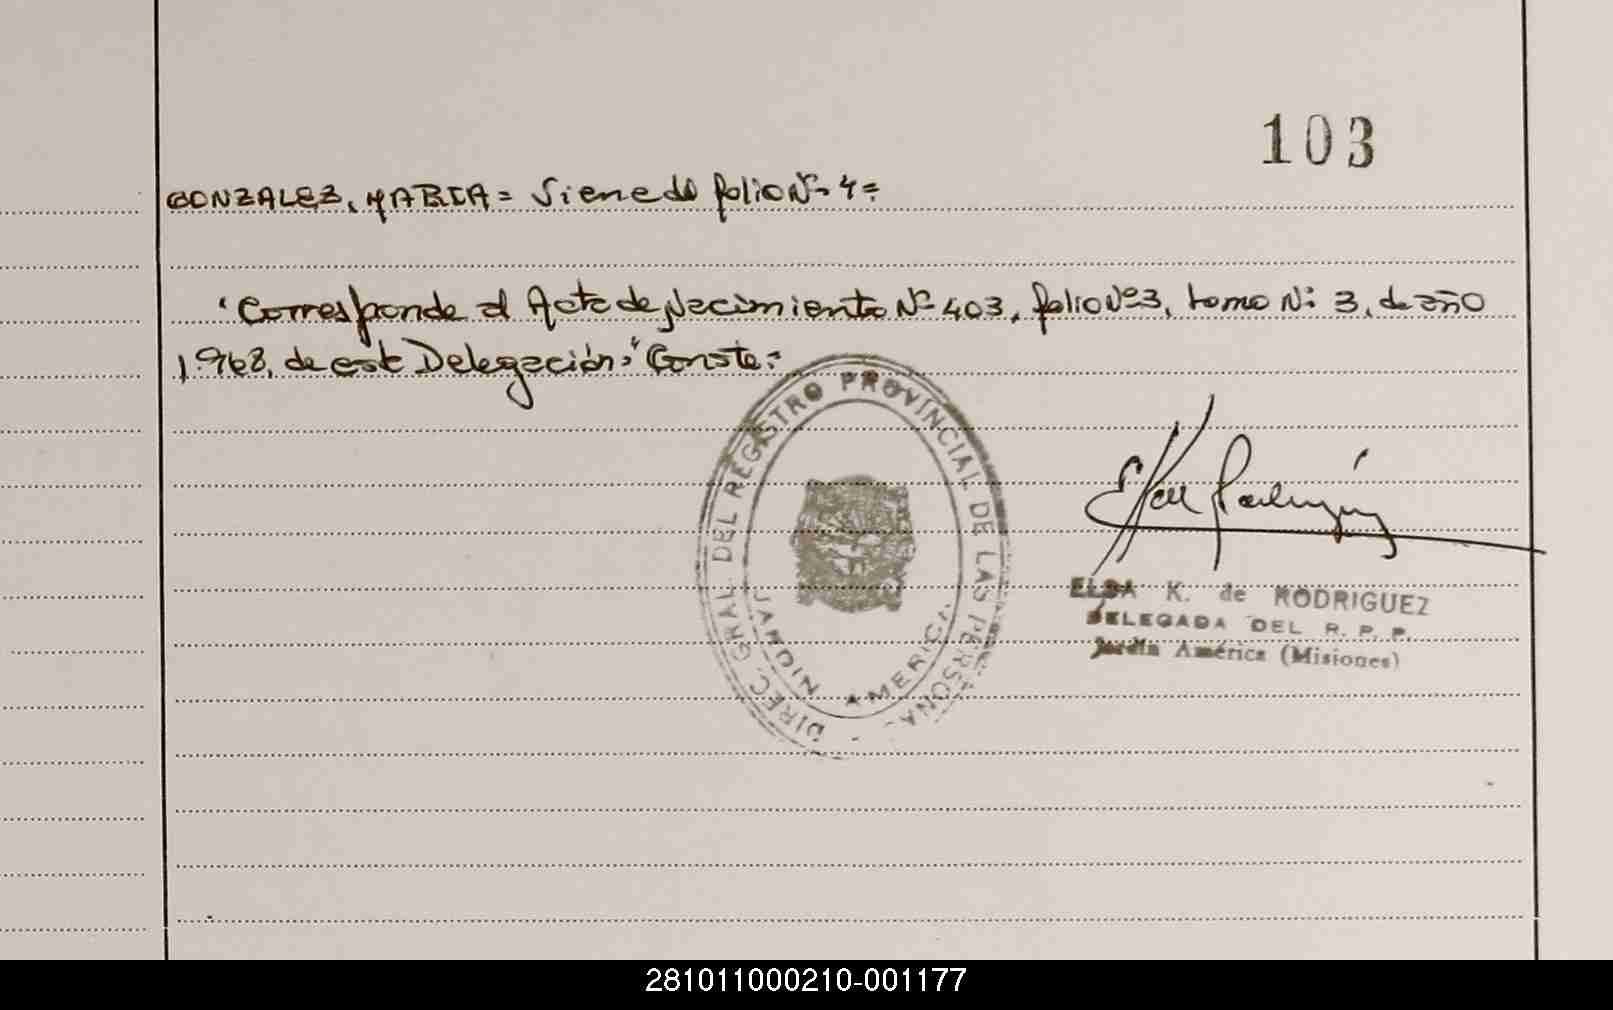 103
GONZALEZ, MARIA = Viene de folio Nº 4 =
"Corresponde al Acta de Nacimiento Nº 403, folio Nº 3, tomo Nº 3, de año
1.968, de esta Delegación." Conste =
DIREC. GRAL. DEL REGISTRO PROVINCIAL DE LAS PERSONAS
JARDIN AMERICA
ELDA K. de RODRIGUEZ
DELEGADA DEL R. P. P.
Jardín América (Misiones)
281011000210-001177